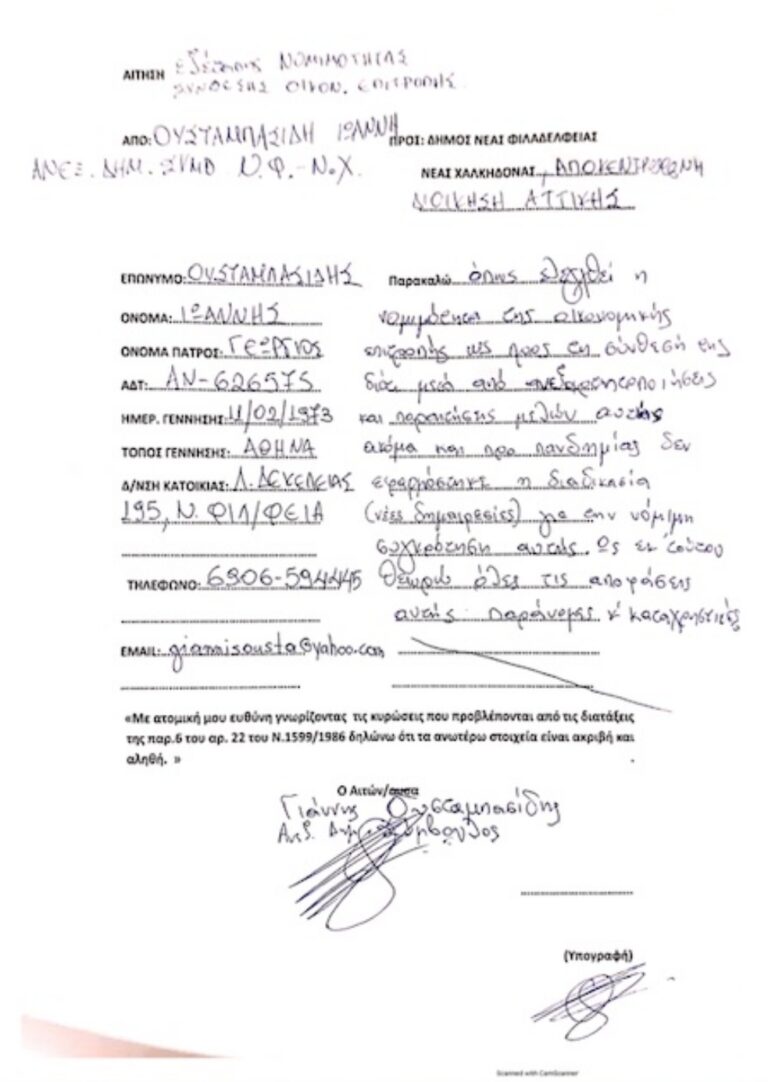 ΑΙΤΗΣΗ εξέτασης ΝΟΜΙΜΟΤΗΤΑΣ
ΣΥΝΘΕΣΗΣ ΟΙΚΟΝ. ΕΠΙΤΡΟΠΗΣ
ΑΠΟ: ΟΥΣΤΑΜΠΑΣΙΔΗ ΙΩΑΝΝΗ
ΑΝΕΞ. ΔΗΜ. ΣΥΜΒ Ν.Φ.-Ν.Χ.
ΠΡΟΣ: ΔΗΜΟΣ ΝΕΑΣ ΦΙΛΑΔΕΛΦΕΙΑΣ
ΝΕΑΣ ΧΑΛΚΗΔΟΝΑΣ, ΑΠΟΚΕΝΤΡΩΜΕΝΗ
ΔΙΟΙΚΗΣΗ ΑΤΤΙΚΗΣ
ΕΠΩΝΥΜΟ: ΟΥΣΤΑΜΠΑΣΙΔΗΣ
ΟΝΟΜΑ: ΙΩΑΝΝΗΣ
ΟΝΟΜΑ ΠΑΤΡΟΣ: ΓΕΩΡΓΙΟΣ
ΑΔΤ: ΑΝ-626575
ΗΜΕΡ. ΓΕΝΝΗΣΗΣ: 11/02/1973
ΤΟΠΟΣ ΓΕΝΝΗΣΗΣ: ΑΘΗΝΑ
Δ/ΝΣΗ ΚΑΤΟΙΚΙΑΣ: Λ. ΔΕΚΕΛΕΙΑΣ
195, Ν. ΦΙΛ/ΦΕΙΑ
ΤΗΛΕΦΩΝΟ: 6906-594445
EMAIL: giannisousta@yahoo.com
Παρακαλώ όπως ελεγχθεί η
νομιμότητα της οικονομικής
επιτροπής ως προς τη σύνθεσή της
διότι μετά από ανεξαρτητοποιήσεις
και παραιτήσεις μελών αυτής
ακόμα και προ πανδημίας δεν
εφαρμόστηκε η διαδικασία
(νέες δημαιρεσίες) για την νόμιμη
συγκρότηση αυτής. Ως εκ τούτου
θεωρώ όλες τις αποφάσεις
αυτής παράνομες κ' καταχρηστικές
«Με ατομική μου ευθύνη γνωρίζοντας τις κυρώσεις που προβλέπονται από τις διατάξεις
της παρ.6 του αρ. 22 του Ν.1599/1986 δηλώνω ότι τα ανωτέρω στοιχεία είναι ακριβή και
αληθή. »
Ο Αιτών/ουσα
Γιάννης Ουσταμπασίδης
Ανεξ. Δημ. Σύμβουλος
(Υπογραφή)
Scanned with CamScanner